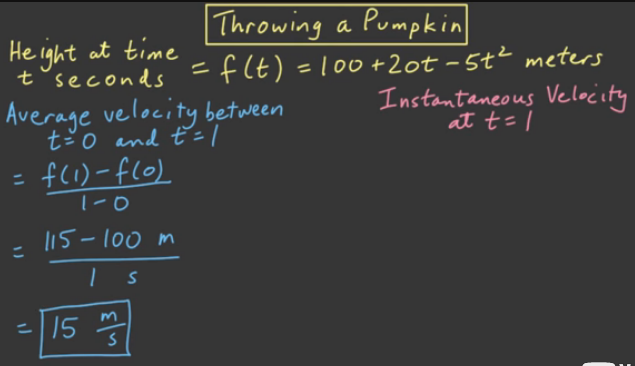 Throwing a Pumpkin
Height at time
t seconds = f(t) = 100 + 20t - 5t² meters
Average velocity between
t=0 and t=1
= f(1) - f(0)
1-0
= 115 - 100 m
1 s
= 15 m/s
Instantaneous Velocity
at t=1